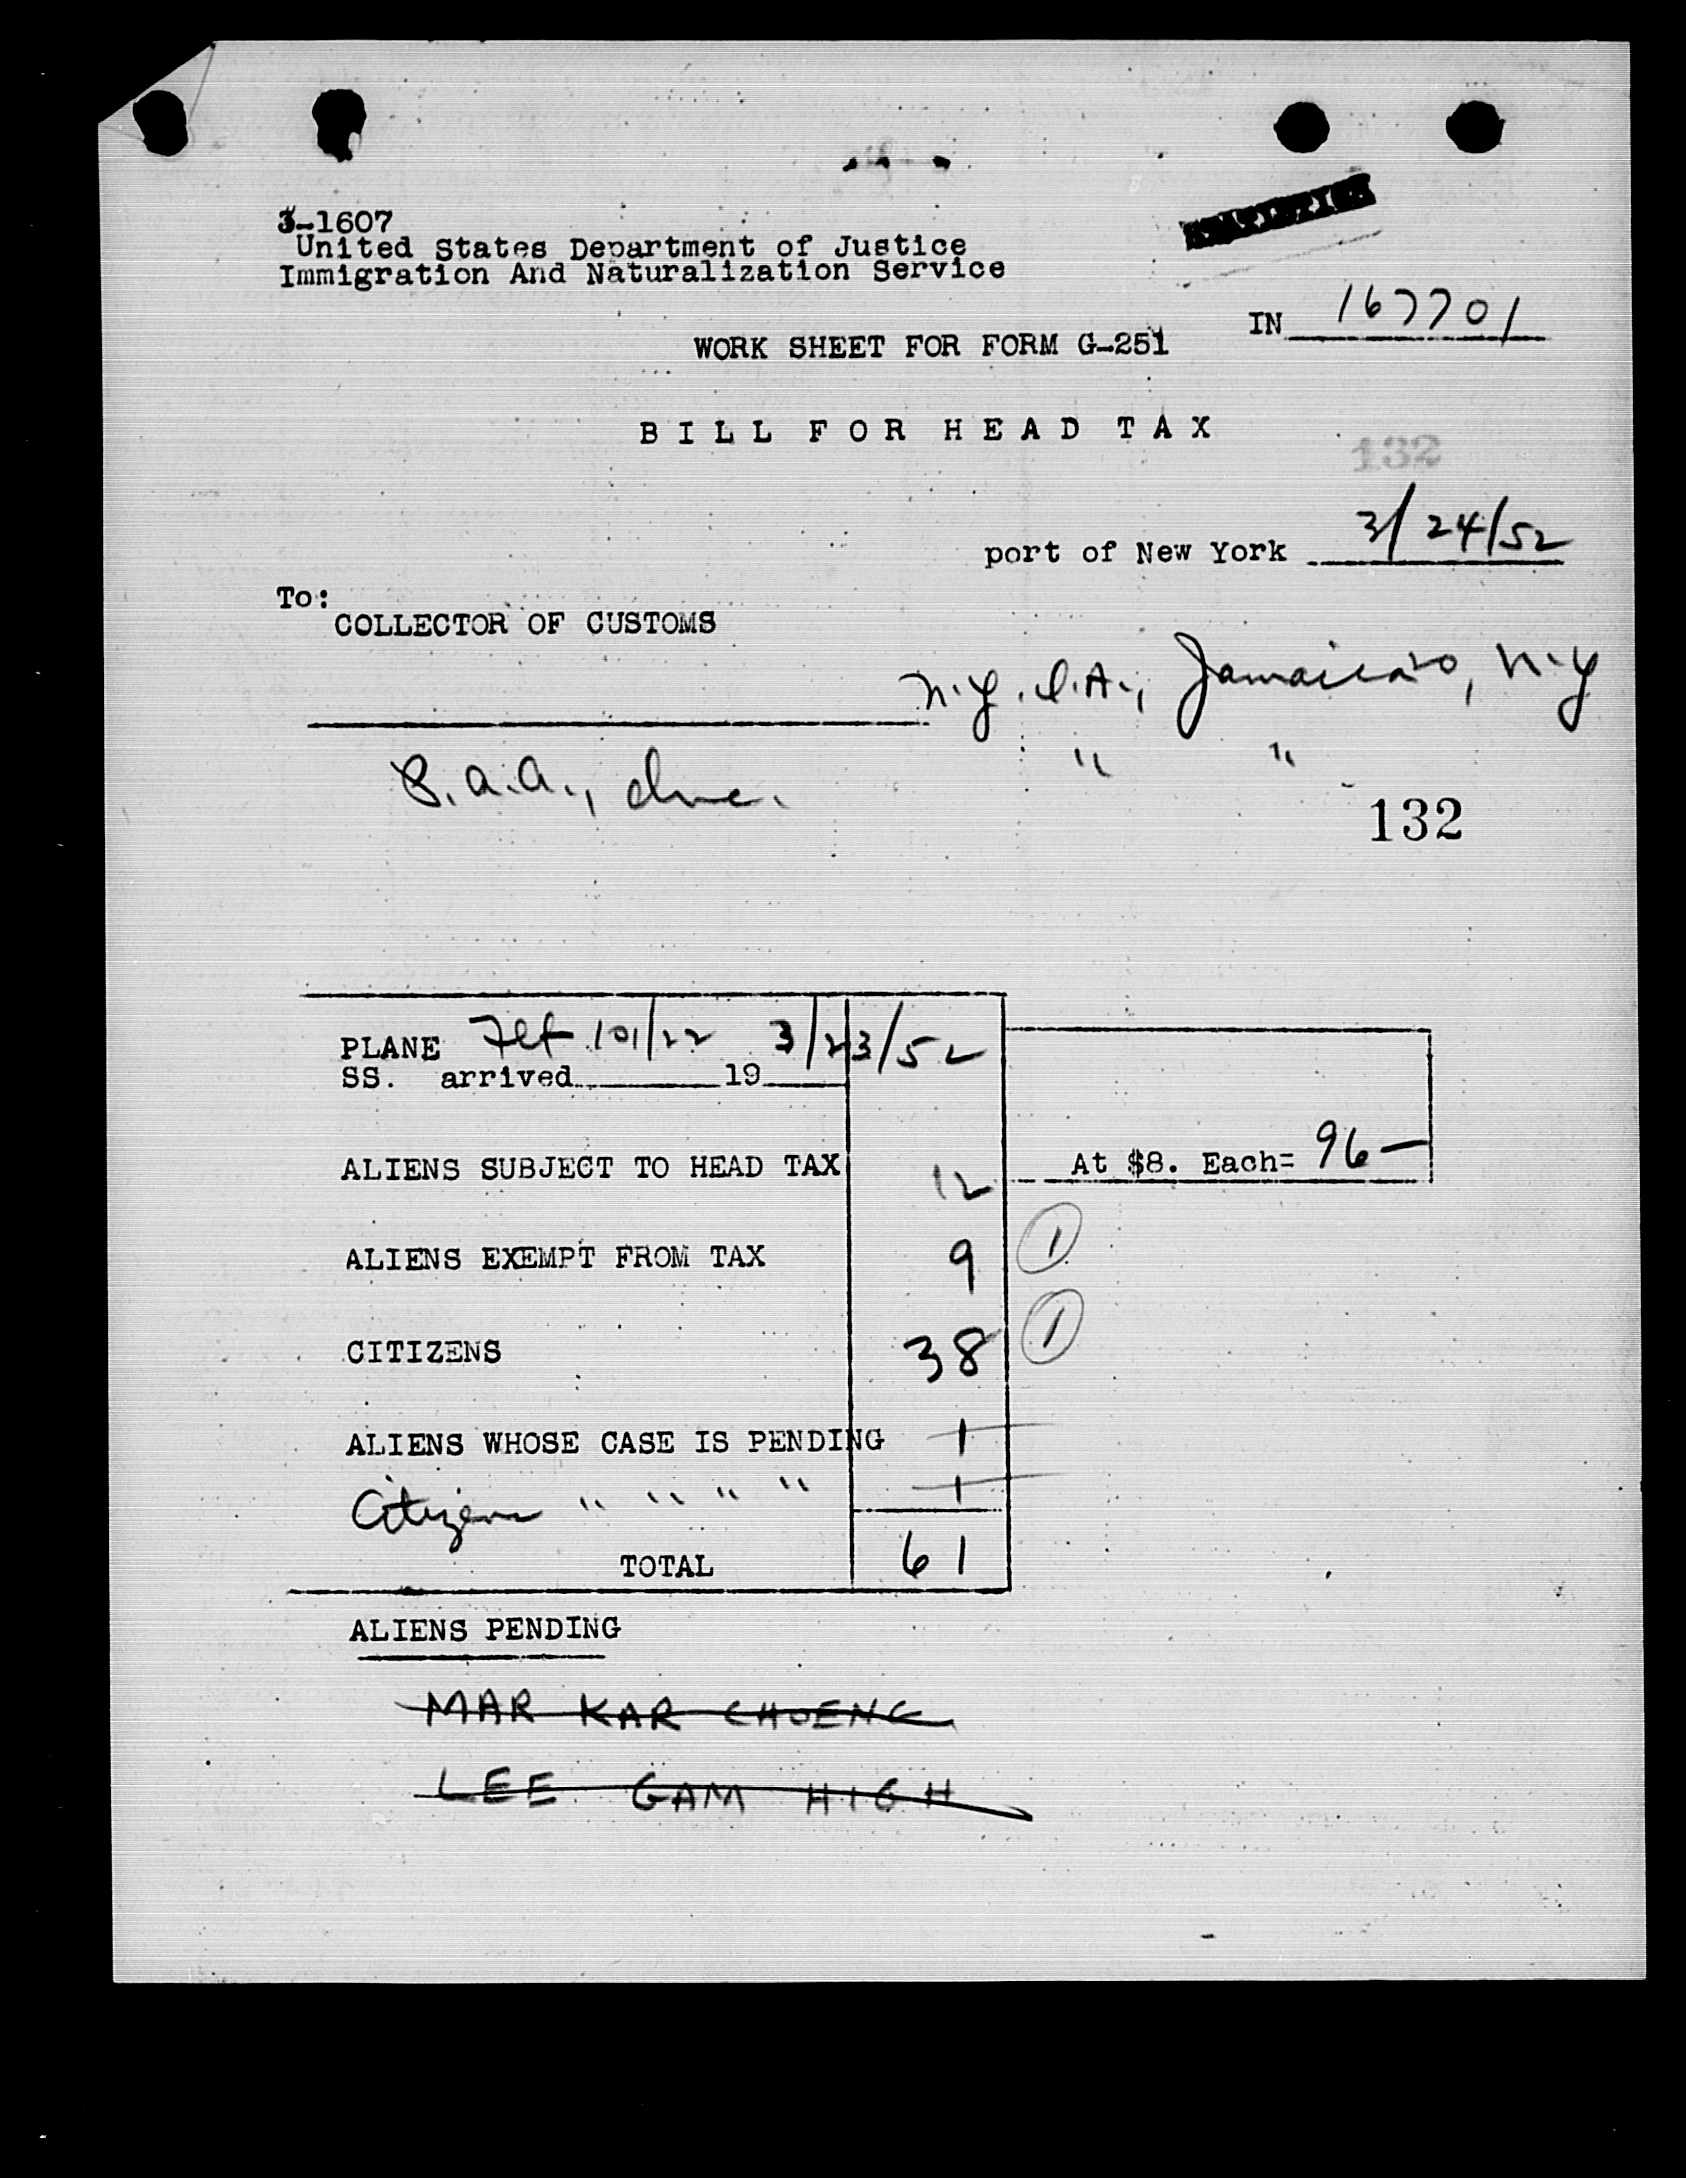 3-1607
United States Department of Justice
Immigration And Naturalization Service
STATISTICS
IN 167701
WORK SHEET FOR FORM G-251
BILL FOR HEAD TAX
132
port of New York 3/24/52
To:
COLLECTOR OF CUSTOMS
N.Y. I.A., Jamaica 30, N.Y
P.A.A., Inc. " "
132
PLANE Flt 101/22 3/23/52
SS. arrived 19
ALIENS SUBJECT TO HEAD TAX 12 At $8. Each= 96—
ALIENS EXEMPT FROM TAX 9 1
CITIZENS 38 1
ALIENS WHOSE CASE IS PENDING 1
Citizens " " " " 1
TOTAL 61
ALIENS PENDING
MAR KAR CHOENG
LEE GAM HIGH